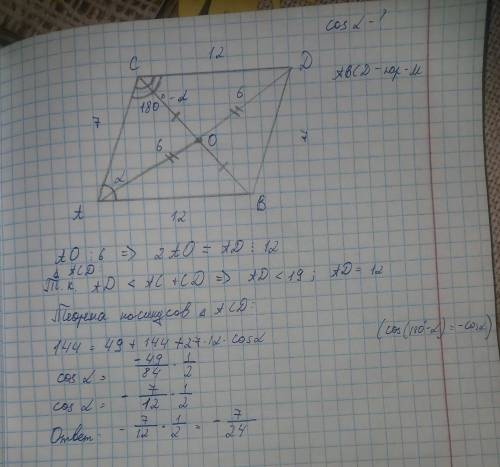 cos α - ?
12
C
D
ABCD - пар-м
180° - α
6
7
O
7
6
α
A
12
B
AO ⋮ 6 => 2AO = AD ⋮ 12
Δ ACD
Т.к. AD < AC + CD => AD < 19 ; AD = 12
Теорема косинусов Δ ACD:
144 = 49 + 144 + 2·7·12·cos α
(cos(180°-α) = -cos α)
cos α = -49/84 · 1/2
cos α = - 7/12 · 1/2
Ответ: - 7/12 · 1/2 = - 7/24